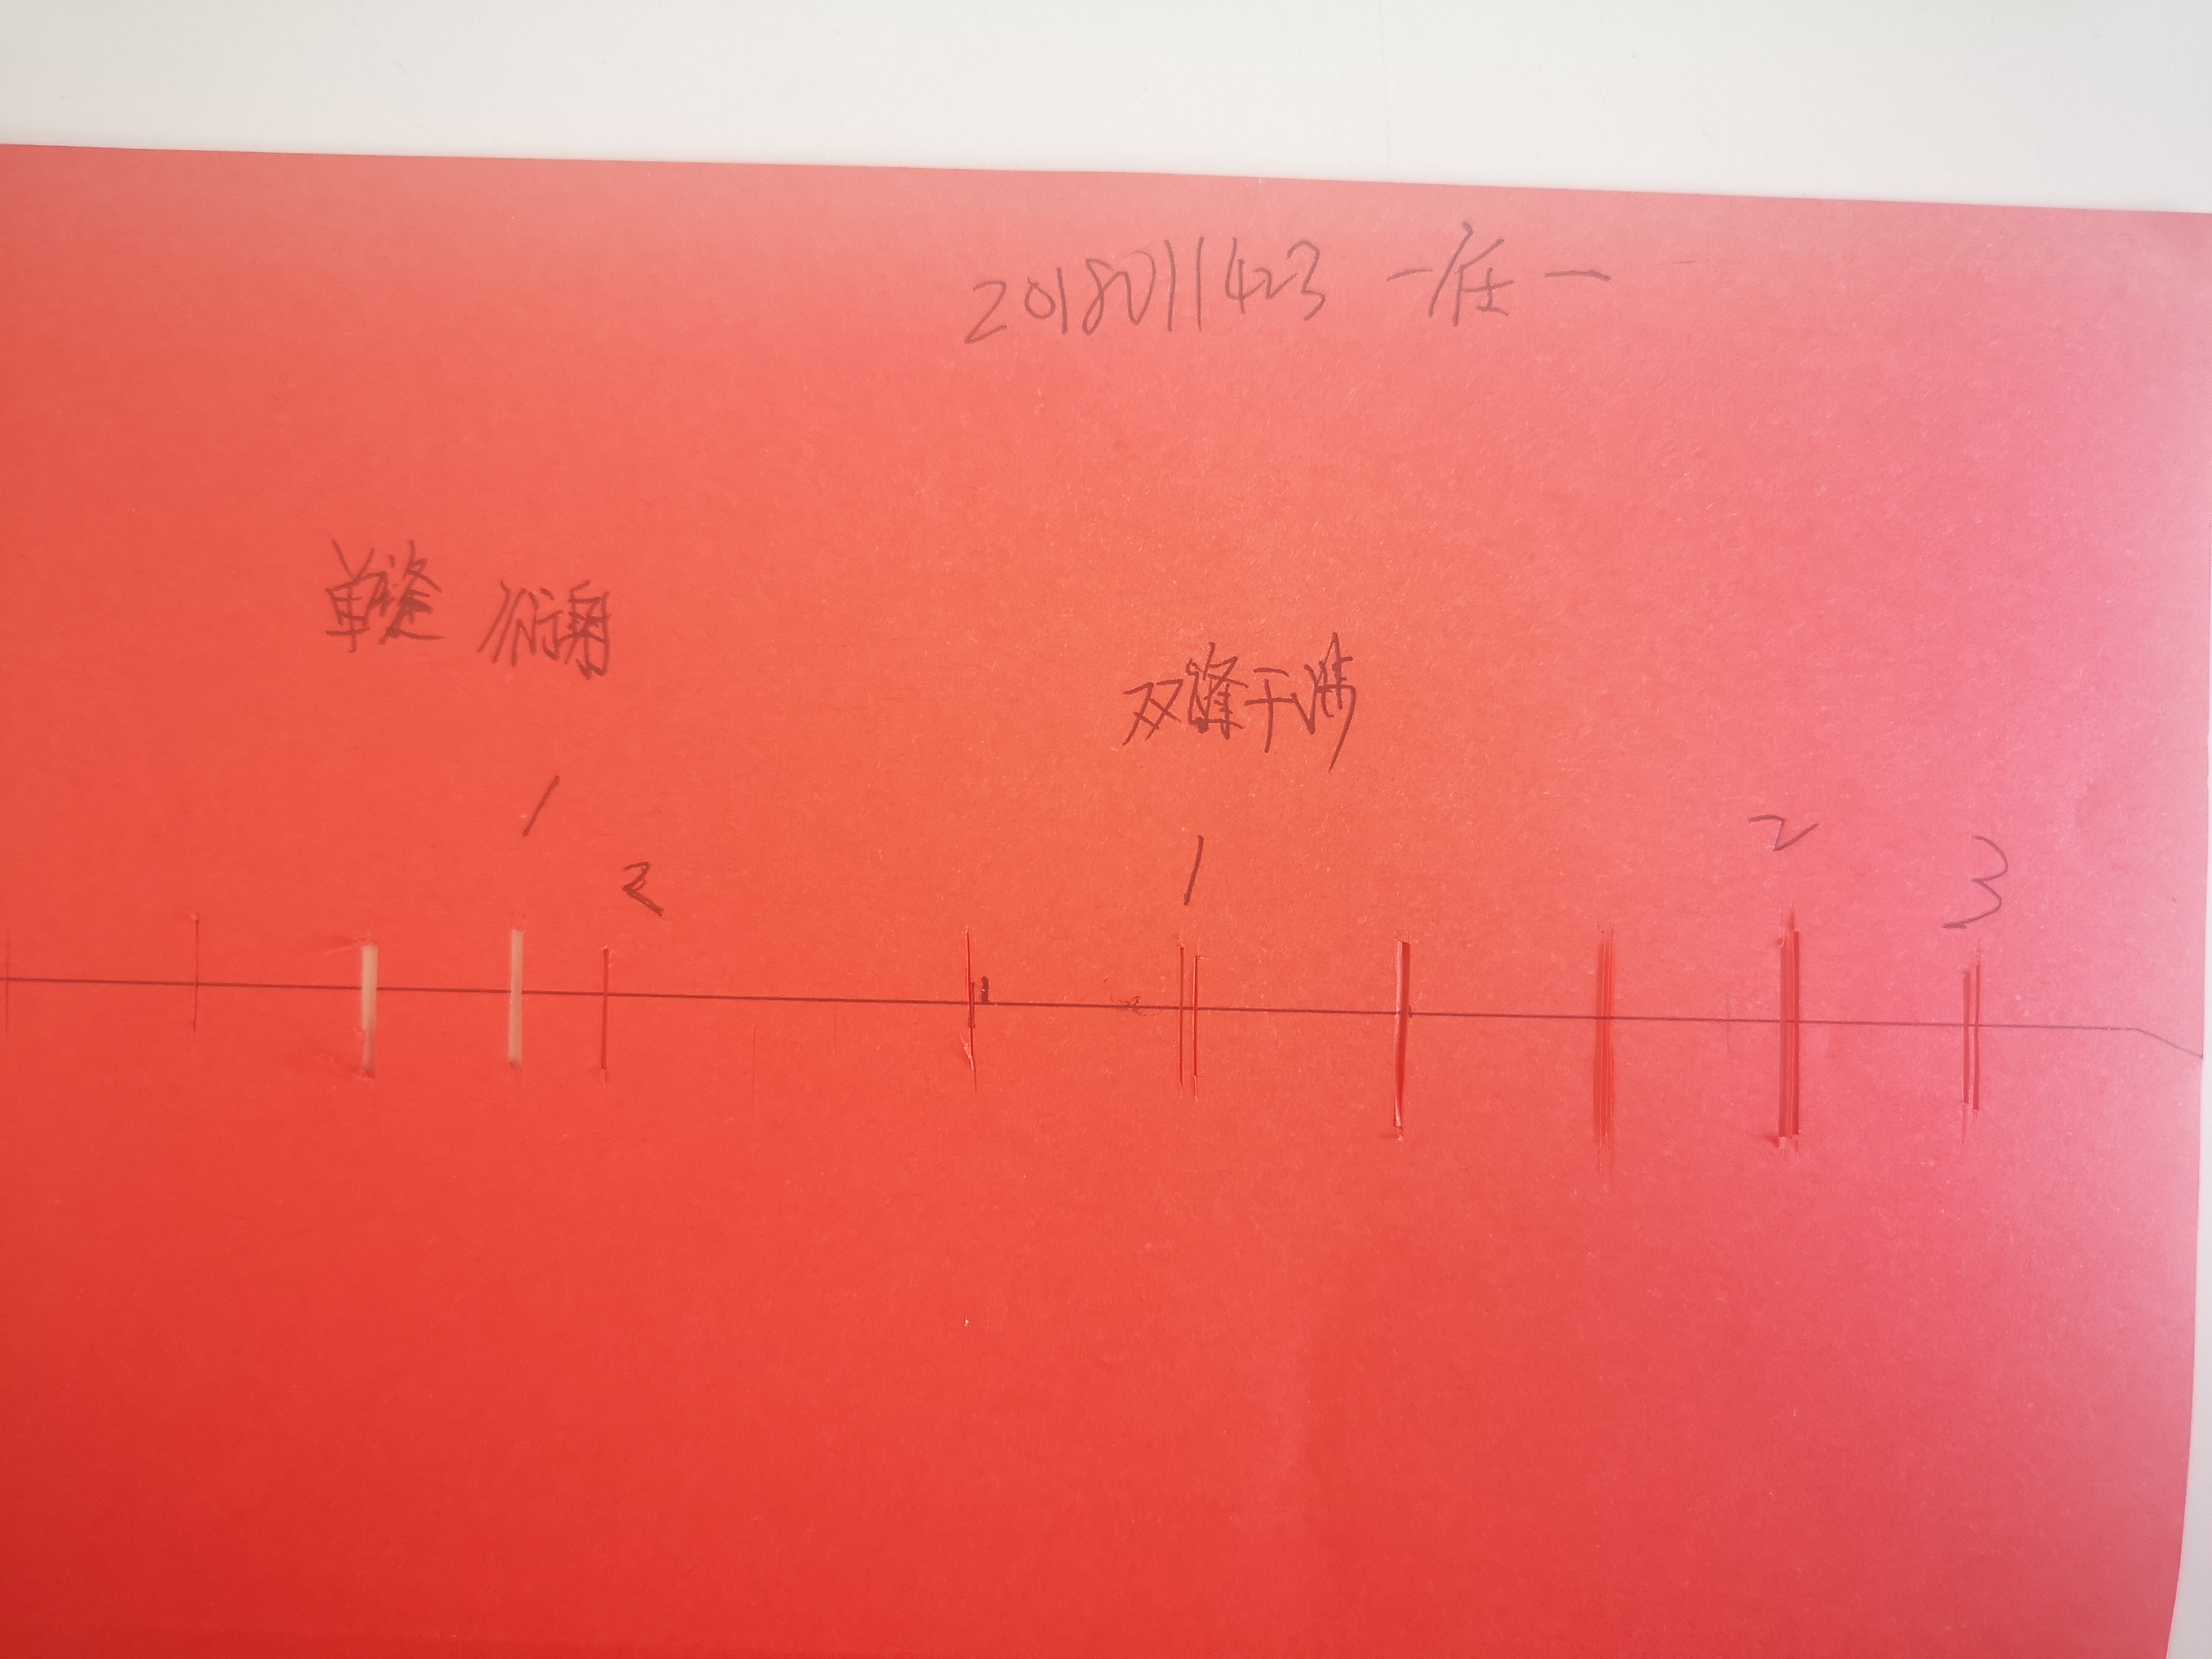 2018011423 任一
单缝 衍射
双缝干涉
1
2
1
2
3